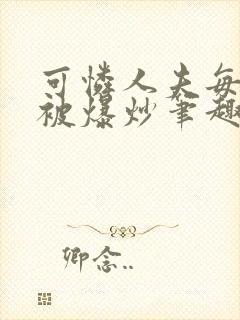 可怜人夫每
被爆炒笔趣
卿念..